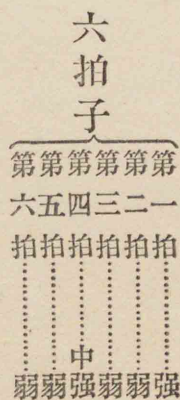 六拍子
第一拍………强
第二拍………弱
第三拍………弱
第四拍………中强
第五拍………弱
第六拍………弱